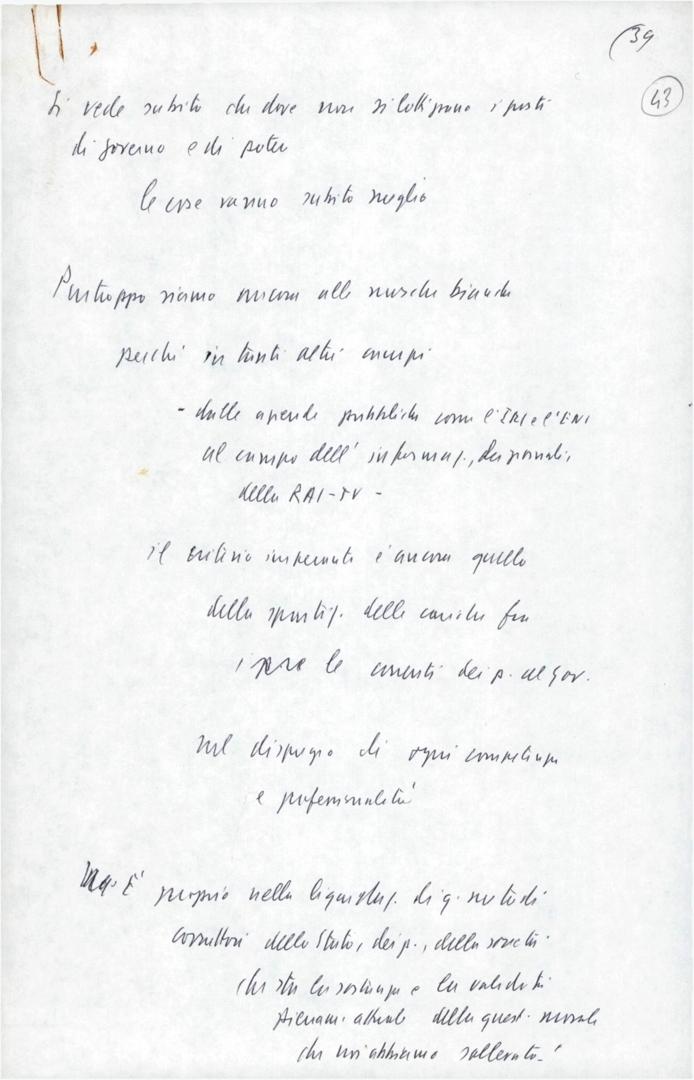 (39
43
Si vede subito che dove non si lottizzano i posti
di governo e di potere
le cose vanno subito meglio
Purtroppo siamo ancora alle mosche bianche
perché in tanti altri campi
- dalle aziende pubbliche come l'IRI e l'ENI
al campo dell'informaz., dei giornali,
della RAI-TV -
il criterio imperante è ancora quello
della spartiz. delle cariche fra
i p. e le correnti dei p. al gov.
nel disprezzo di ogni competenza
e professionalità
Ma È proprio nella liquidaz. di q. metodi
corruttori dello Stato, dei p., della società
che sta la sostanza e la validità
pienam. attuale della quest. morale
che noi abbiamo sollevato.